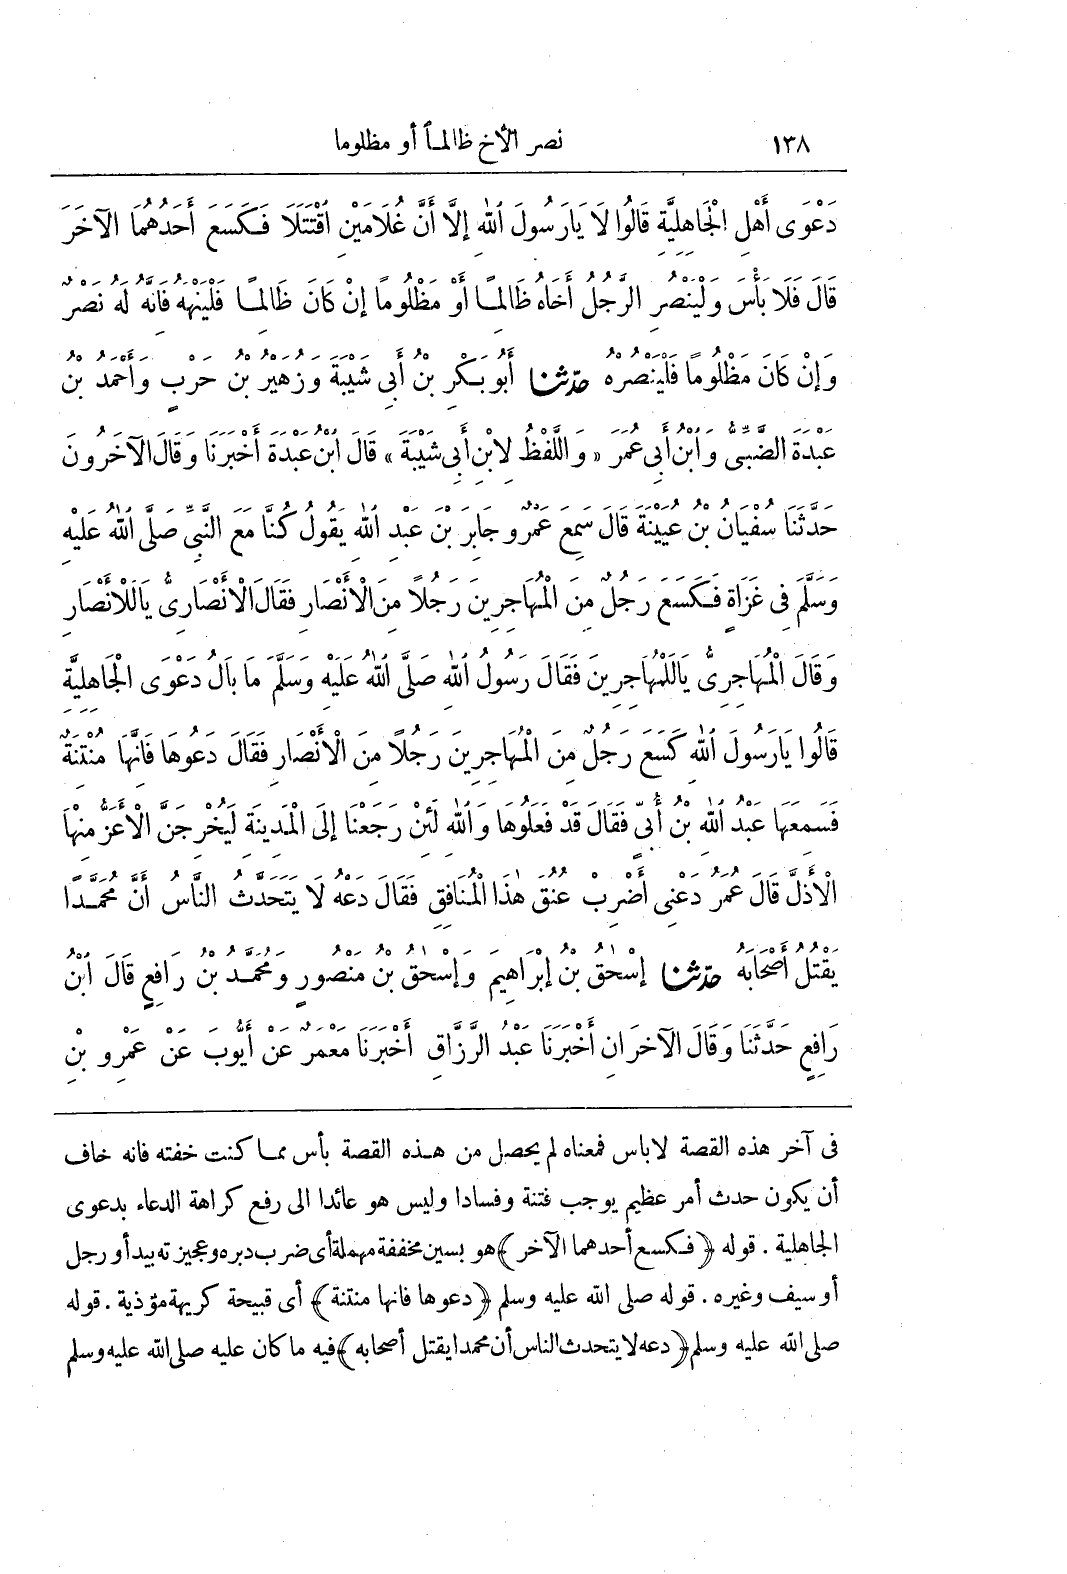 ١٣٨ نصر الأخ ظالمـاً أو مظلوما
دَعْوَى أَهْلِ الْجَاهِلِيَّةِ قَالُوا لَا يَارَسُولَ ٱللهِ إِلَّا أَنَّ غُلَامَيْنِ اقْتَتَلَا فَـكَسَعَ أَحَدُهُمَا الْآخَرَ
قَالَ فَلَا بَأْسَ وَلْيَنْصُرِ الرَّجُلُ أَخَاهُ ظَالِمـًا أَوْ مَظْلُومًا إِنْ كَانَ ظَالِمـًا فَلْيَنْهَهُ فَانَّهُ لَهُ نَصْرٌ
وَإِنْ كَانَ مَظْلُومًا فَلْيَنْصُرْهُ حدّثنا أَبُو بَـكْرِ بْنُ أَبِي شَيْبَةَ وَزُهَيْرُ بْنُ حَرْبٍ وَأَحْمَدُ بْنُ
عَبْدَةَ الضَّبِّىُّ وَٱبْنُ أَبِى عُمَرَ « وَاللَّفْظُ لِابْنِ أَبِى شَيْبَةَ » قَالَ ٱبْنُ عَبْدَةَ أَخْبَرَنَا وَقَالَ الْآخَرُونَ
حَدَّثَنَا سُفْيَانُ بْنُ عُيَيْنَةَ قَالَ سَمِعَ عَمْرٌو جَابِرَ بْنَ عَبْدِ ٱللهِ يَقُولُ كُنَّا مَعَ النَّبِيِّ صَلَّى ٱللهُ عَلَيْهِ
وَسَلَّمَ فِى غَزَاةٍ فَـكَسَعَ رَجُلٌ مِنَ الْمُهَاجِرِينَ رَجُلًا مِنَ الْأَنْصَارِ فَقَالَ الْأَنْصَارِىُّ يَالَلْأَنْصَارِ
وَقَالَ الْمُهَاجِرِىُّ يَالَلْمُهَاجِرِينَ فَقَالَ رَسُولُ ٱللهِ صَلَّى ٱللهُ عَلَيْهِ وَسَلَّمَ مَا بَالُ دَعْوَى الْجَاهِلِيَّةِ
قَالُوا يَارَسُولَ ٱللهِ كَسَعَ رَجُلٌ مِنَ الْمُهَاجِرِينَ رَجُلًا مِنَ الْأَنْصَارِ فَقَالَ دَعُوهَا فَانَّهَا مُنْتِنَةٌ
فَسَمِعَهَا عَبْدُ ٱللهِ بْنُ أُبَيٍّ فَقَالَ قَدْ فَعَلُوهَا وَٱللهِ لَئِنْ رَجَعْنَا إِلَى الْمَدِينَةِ لَيُخْرِجَنَّ الْأَعَزُّ مِنْهَا
الْأَذَلَّ قَالَ عُمَرُ دَعْنِى أَضْرِبْ عُنُقَ هٰذَا الْمُنَافِقِ فَقَالَ دَعْهُ لَا يَتَحَدَّثُ النَّاسُ أَنَّ مُحَمَّـدًا
يَقْتُلُ أَصْحَابَهُ حدّثنا إِسْحٰقُ بْنُ إِبْرَاهِيمَ وَإِسْحٰقُ بْنُ مَنْصُورٍ وَمُحَمَّـدُ بْنُ رَافِعٍ قَالَ ٱبْنُ
رَافِعٍ حَدَّثَنَا وَقَالَ الْآخَرَانِ أَخْبَرَنَا عَبْدُ الرَّزَّاقِ أَخْبَرَنَا مَعْمَرٌ عَنْ أَيُّوبَ عَنْ عَمْرِو بْنِ
فى آخر هذه القصة لاباس فمعناه لم يحصل من هـذه القصة بأس ممـا كنت خفته فانه خاف
أن يكون حدث أمر عظيم يوجب فتنة وفسادا وليس هو عائدا الى رفع كراهة الدعاء بدعوى
الجاهلية . قوله ﴿فـكسع أحدهما الآخر﴾ هو بسين مخففة مهملة أى ضرب دبره وعجيزته بيد أو رجل
أو سيف وغيره . قوله صلى الله عليه وسلم ﴿دعوها فانها منتنة﴾ أى قبيحة كريهة مؤذية . قوله
صلى الله عليه وسلم ﴿دعه لا يتحدث الناس أن محمدا يقتل أصحابه﴾ فيه ما كان عليه صلى الله عليه وسلم